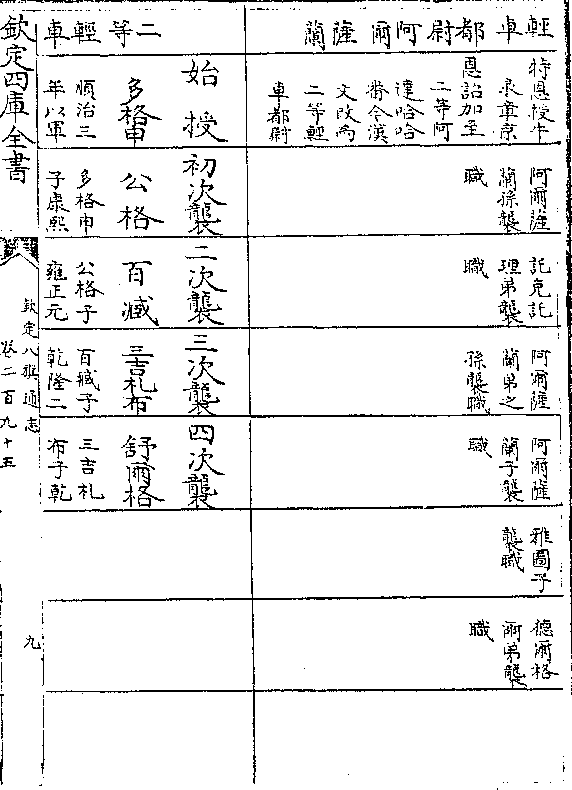 輕車都尉阿爾薩蘭
特恩授牛
录章京
恩詔加至
二等阿
達哈哈
番今漢
文改為
二等輕
車都尉
阿爾薩
蘭孫襲
職
託克託
理弟襲
職
阿爾薩
蘭弟之
孫襲職
阿爾薩
蘭子襲
職
雅圖子
襲職
德爾格
爾弟襲
職
二等輕車
始授
多格申
順治三
年以軍
初次襲
公格
多格申
子康熙
二次襲
百臧
公格子
雍正元
三次襲
三吉札布
百臧子
乾隆二
四次襲
舒爾格
三吉札
布子乾
欽定四庫全書
欽定八旗通志
卷二百九十五
九